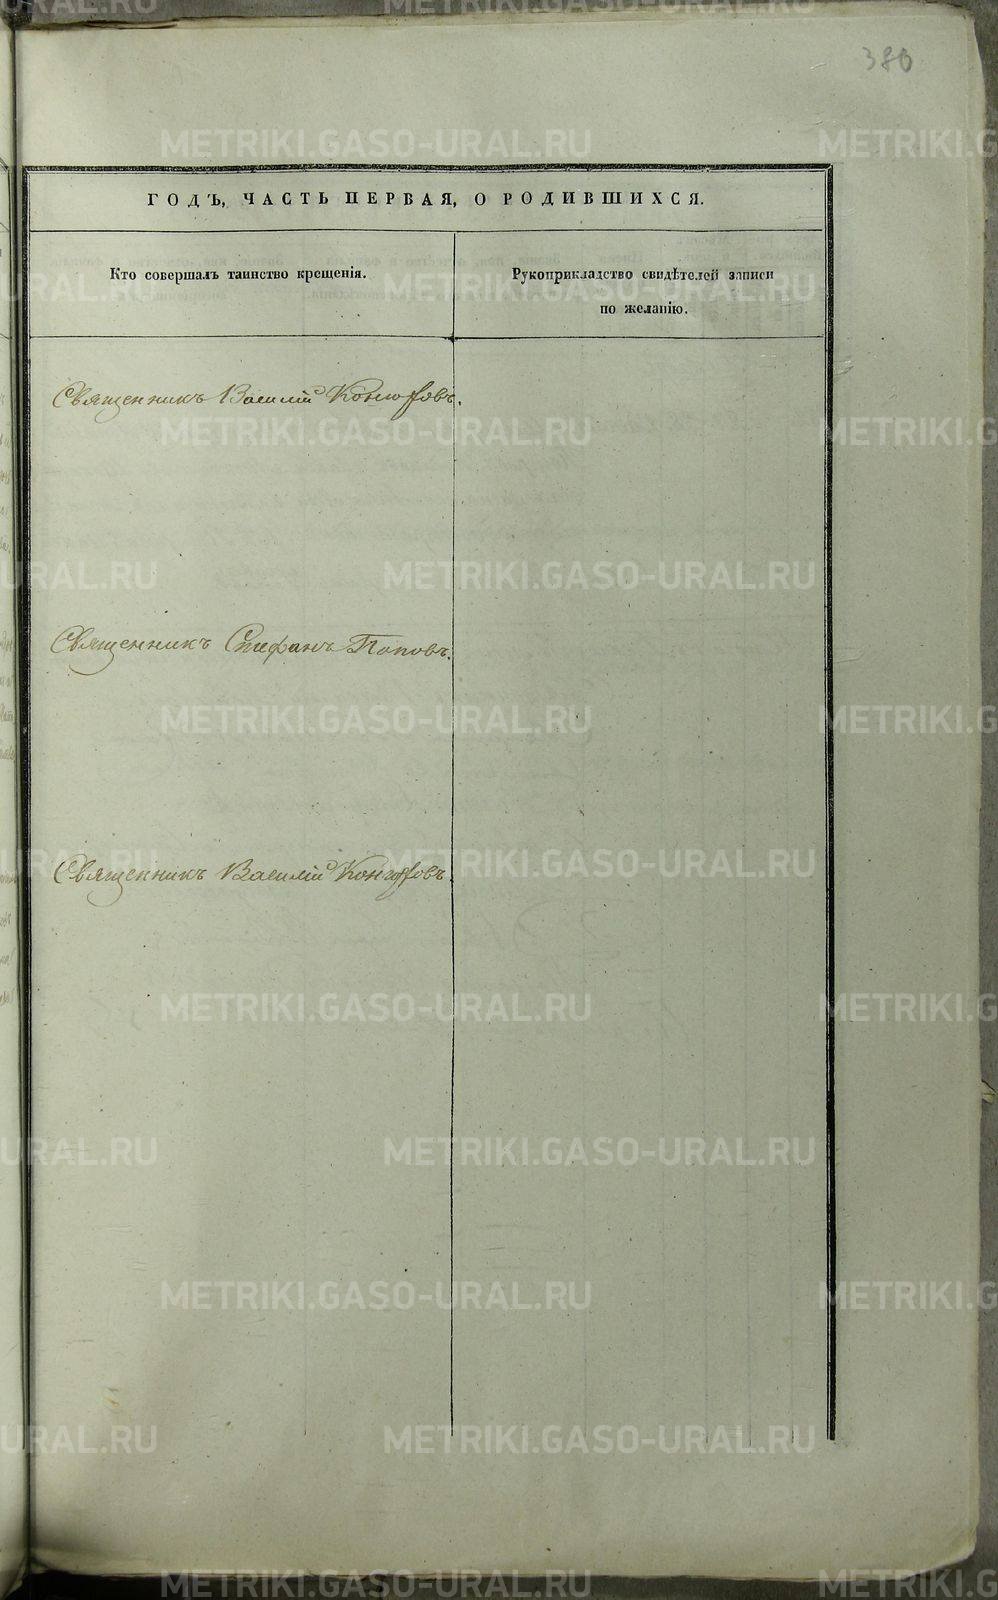 380
ГОДЪ, ЧАСТЬ ПЕРВАЯ, О РОДИВШИХСЯ.
Кто совершалъ таинство крещенія.
Рукоприкладство свидѣтелей записи
по желанію.
Священникъ Василій
Священникъ Стефанъ Поповъ.
Священникъ Василій
METRIKI.GASO-URAL.RU